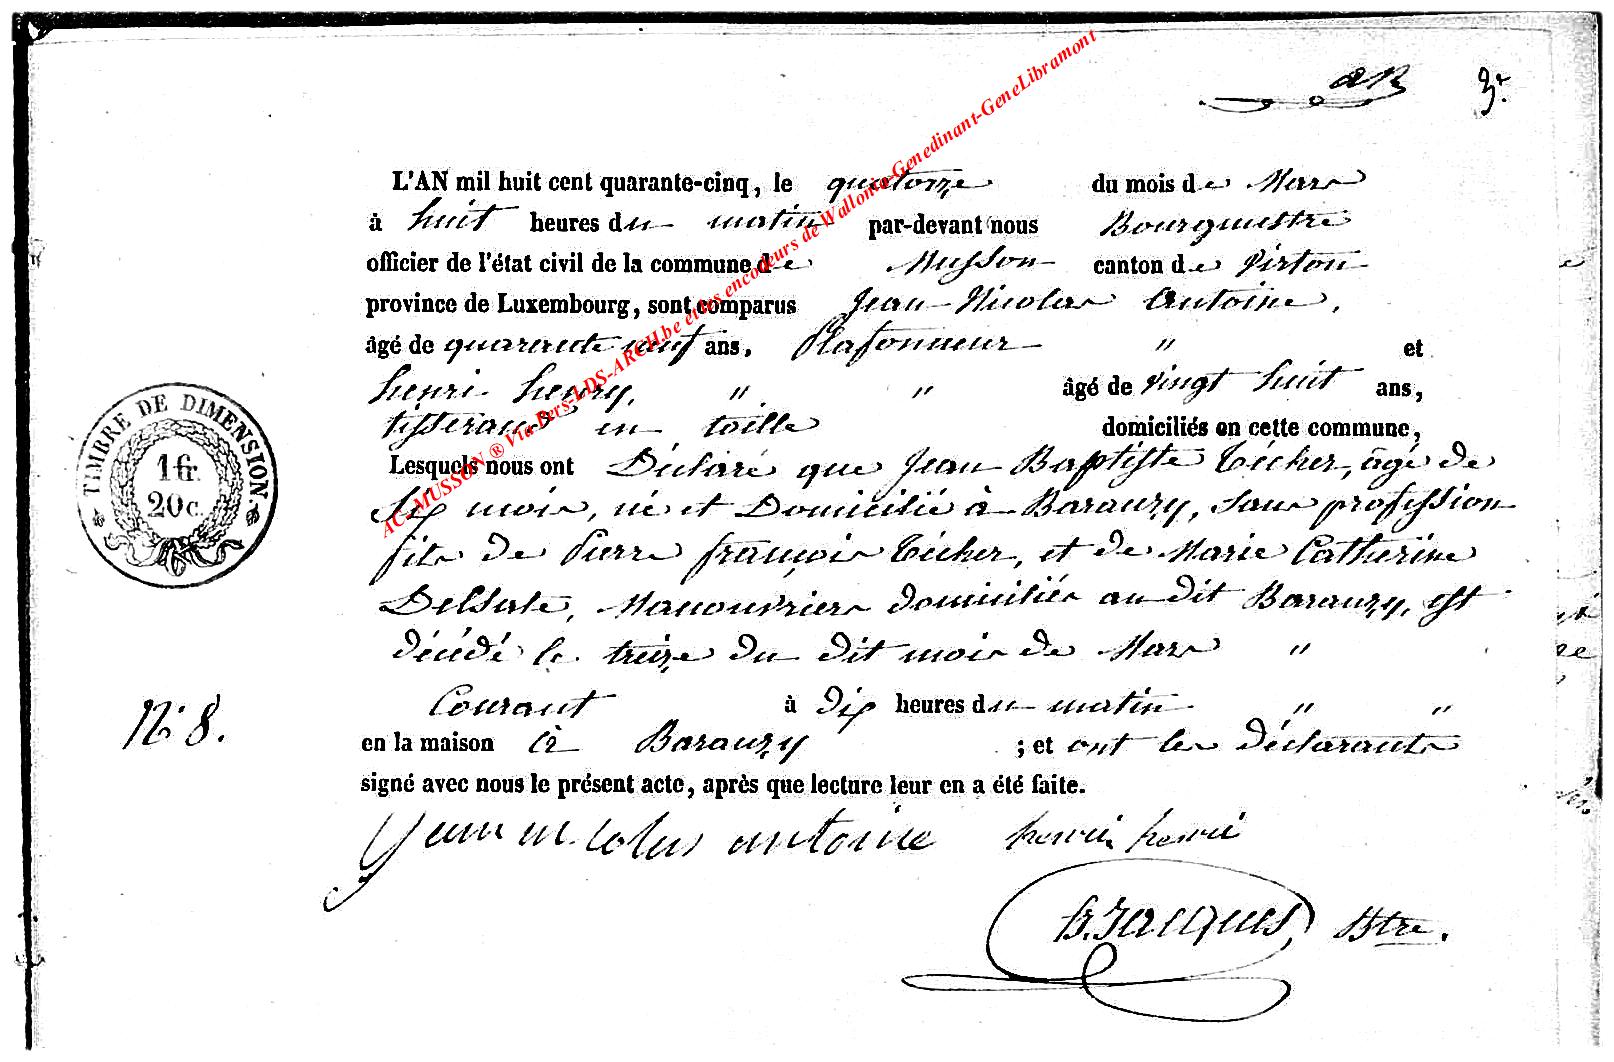 3e.
L'AN mil huit cent quarante-cinq, le quatorze du mois de Mars
à huit heures du matin par-devant nous Bourgmestre
officier de l'état civil de la commune de Musson canton de Virton
province de Luxembourg, sont comparus Jean Nicolas Antoine,
âgé de quarante neuf ans, Plafonneur " et
henri henry, " " âgé de vingt huit ans,
tisserand en toille domiciliés en cette commune,
Lesquels nous ont Déclaré que Jean Baptiste Técher, âgé de
six mois, né et Domicilié à Baranzy, sans profession
fils de Pierre françois Técher, et de Marie Catherine
Delsate, Manouvriers domiciliés au dit Baranzy, est
décédé le treize du dit mois de Mars "
Courant à dix heures du matin " "
en la maison à Baranzy ; et ont les déclarants
signé avec nous le présent acte, après que lecture leur en a été faite.
Jean nicolas antoine henri henri
B. Jacques, Btre.
TIMBRE DE DIMENSION.
1 fr.
20 c.
N° 8.
AC-MUSSON ® Via Pers-LDS-ARCH.be et les encodeurs de Wallonia-Genedinant-GeneLibramont